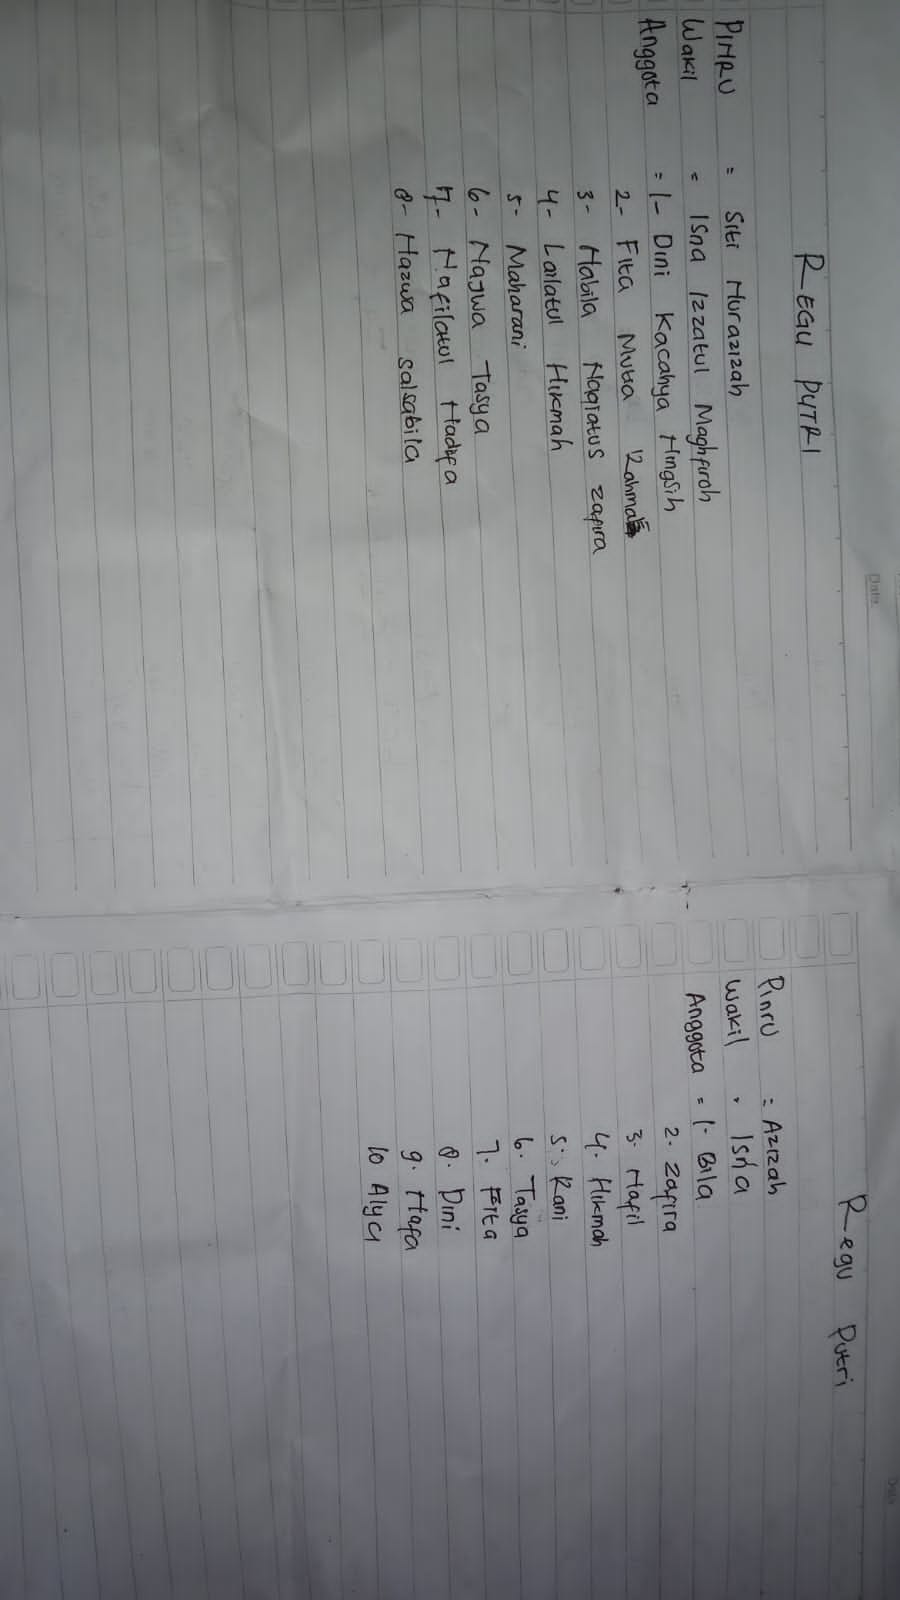 REGU PUTRI
PINRU = Siti Nurazizah
Wakil = ISna Izzatul Maghfiroh
Anggota = 1- Dini Kacahya Ningsih
2- Fita Mutia Rahma
3- Nabila Naqiatus Zafira
4- Lailatul Hikmah
5- Maharani
6- Najwa Tasya
7- Nafilatul Hadifa
8- Hazwa salsabila
Date
Regu Putri
Pinru = Azizah
Wakil . Isna
Anggota = 1. Bila
2. Zafira
3. Nafil
4. Hikmah
5. Rani
6. Tasya
7. Fita
8. Dini
9. Hafa
10 Alya